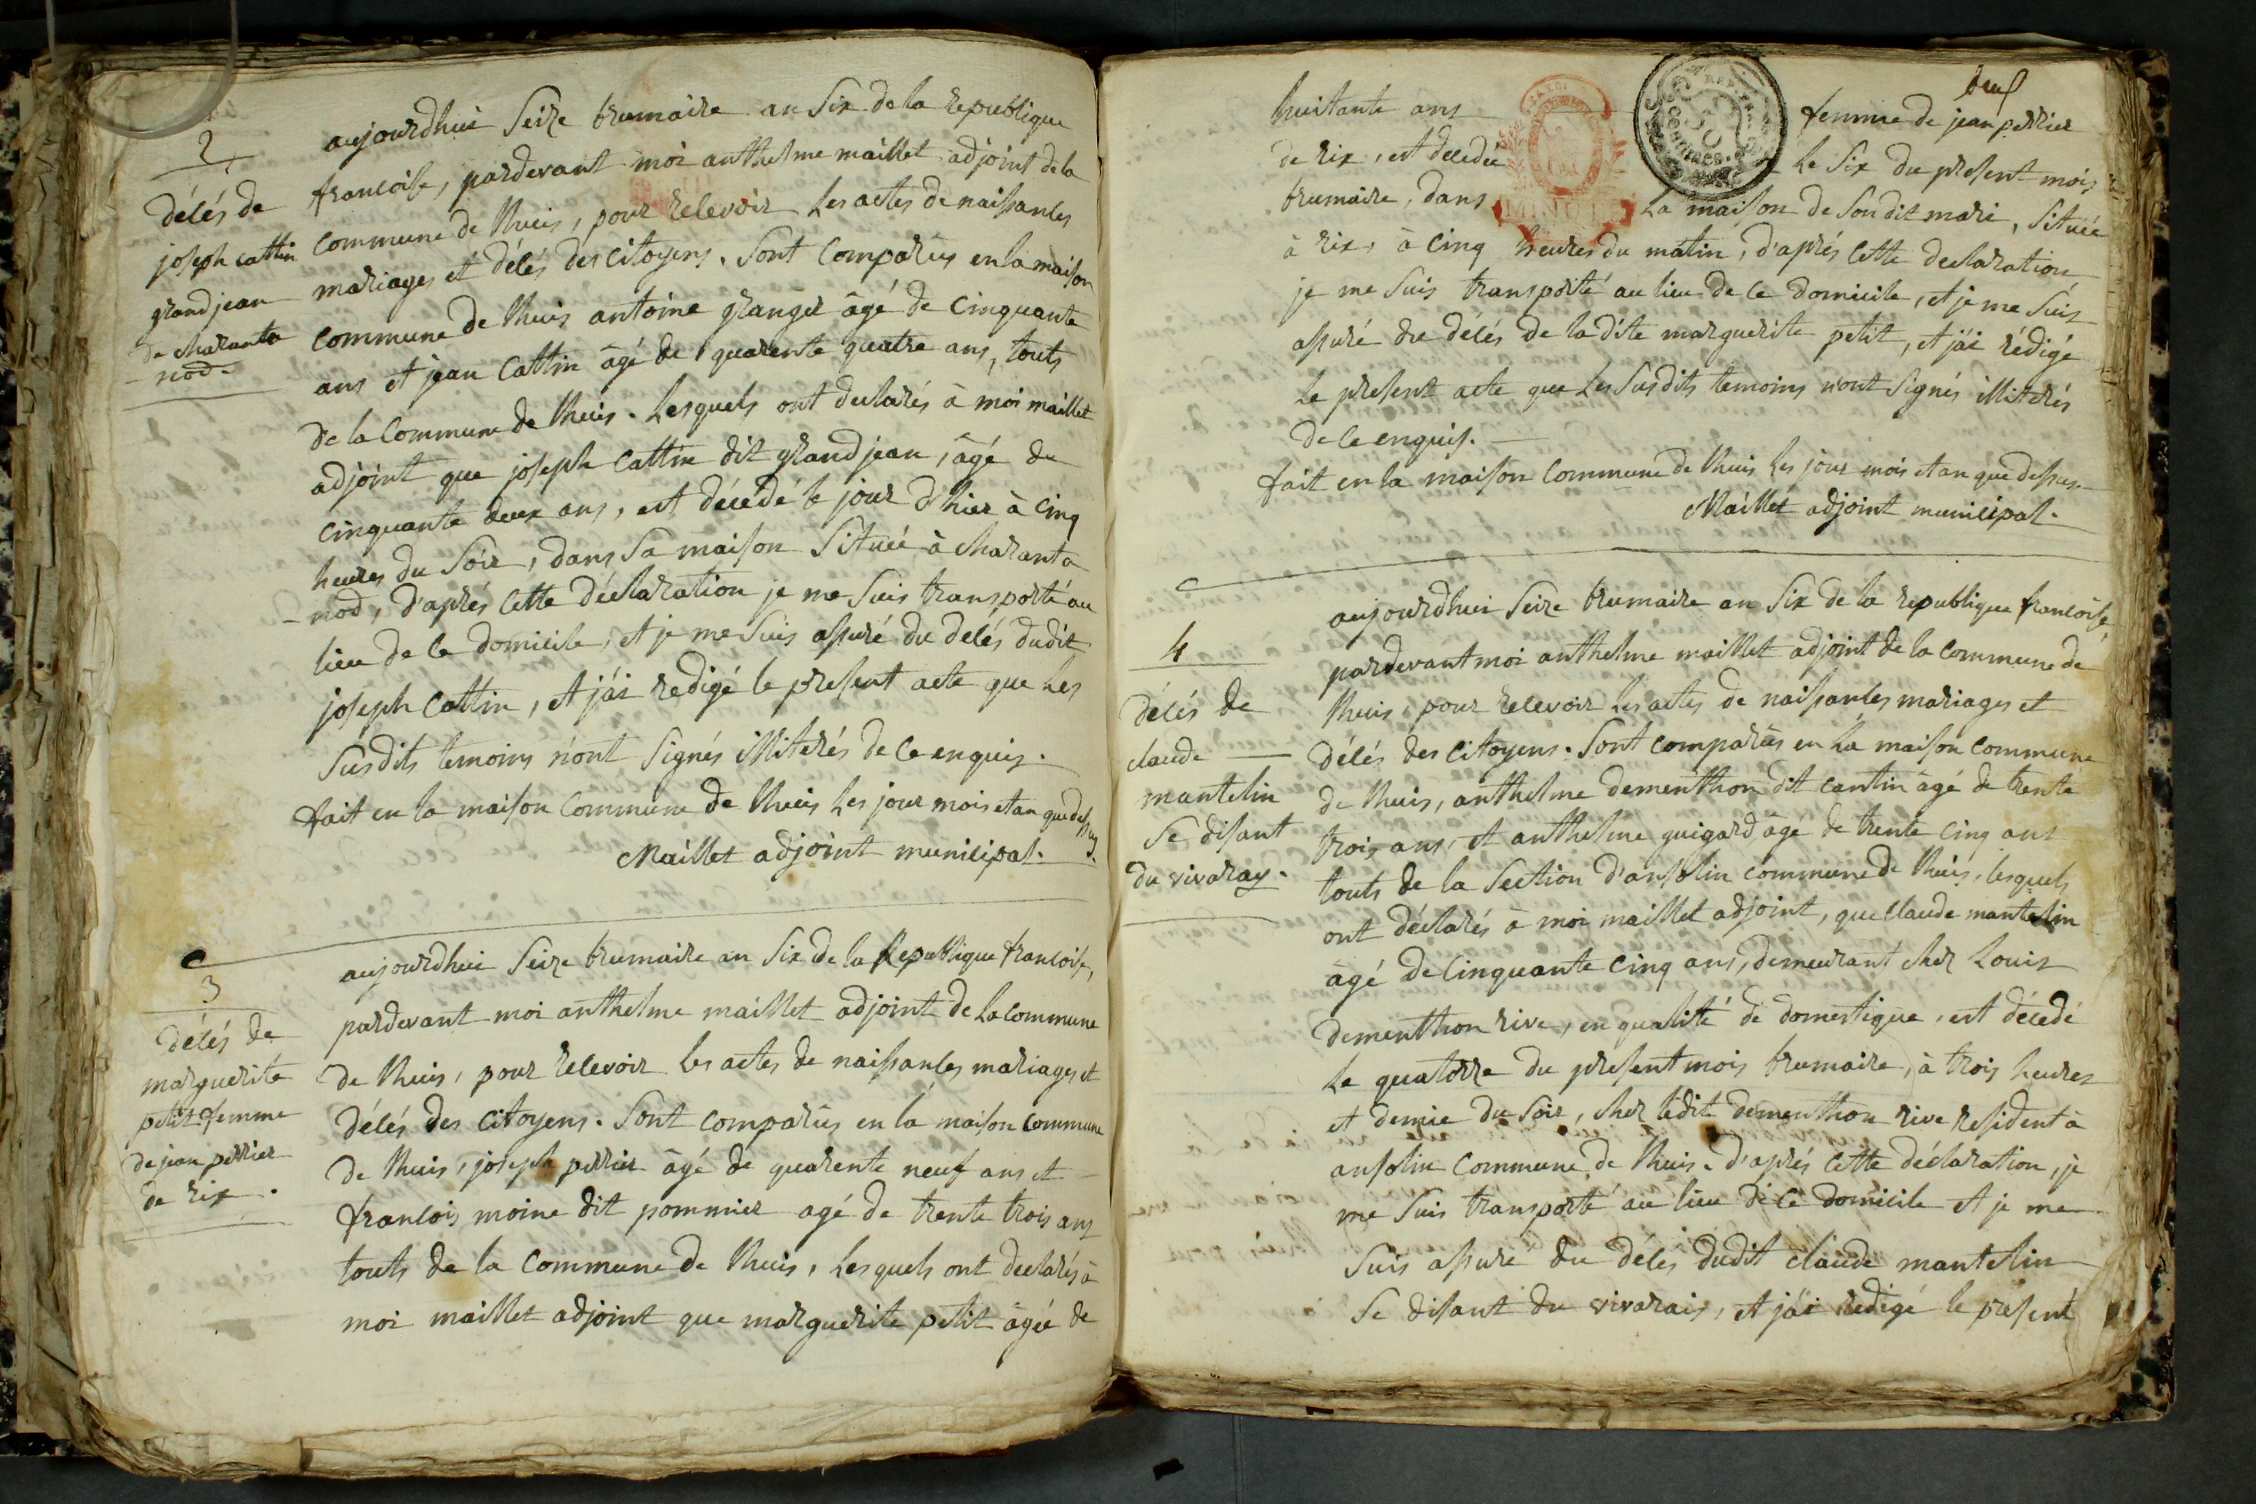 2
décés de
joseph cattin
grand jean
de charanto
-nod.
aujourdhui Seize brumaire an Six de la republique
francoise, pardevant moi anthelme maillet adjoint de la
commune de Lhuis, pour recevoir les actes de naissances
mariages et décés des citoyens. Sont comparûs en la maison
commune de Lhuis antoine granger âgé de cinquante
ans et jean Cattin âgé de quarente quatre ans, touts
de la Commune de Lhuis. Lesquels ont declarés à moi maillet
adjoint que joseph Cattin dit grand jean, âgé de
cinquante deux ans, est décedé le jour d'hier à cinq
heures du Soir, dans Sa maison Située à charanto
-nod, d'aprés cette déclaration je me Suis transporté au
lieu de ce domicile, et je me Suis assuré du decés dudit
joseph Cattin, et j'ai redigé le present acte que les
Susdits temoins n'ont Signés illiterés de ce enquis.
fait en la maison Commune de Lhuis les jour mois et an que dessus.
Maillet adjoint municipal.
3
décés de
marguerite
petit femme
de jean perrier
de rix.
aujourdhui Seize brumaire an Six de la Republique francoise,
pardevant moi anthelme maillet adjoint de la commune
de Lhuis, pour recevoir les actes de naissances mariages et
décés des citoyens. Sont comparûs en la maison commune
de Lhuis, joseph perrier âgé de quarente neuf ans et
francois moine dit pommier agé de trente trois ans
touts de la Commune de Lhuis, Lesquels ont declarés à
moi maillet adjoint que marguerite petit âgée de
deux
huitante ans femme de jean perrier
de rix, est decedée le Six du present mois
brumaire, dans la maison de Son dit mari, Située
MINUTE
à rix, à cinq heures du matin, d'aprés cette declaration
je me Suis transporté au lieu de ce domicile, et je me Suis
assuré du décés de la dite marguerite petit, et j'ai rédigé
le present acte que les Susdits temoins n'ont Signés illiterés
de ce enquis.
fait en la maison Commune de Lhuis les jour mois et an que dessus.
Maillet adjoint municipal.
4
décés de
claude
mantelin
Se disant
du vivaray.
aujourdhui Seize brumaire an Six de la republique francoise,
pardevant moi anthelme maillet adjoint de la commune de
Lhuis, pour recevoir les actes de naissances mariages et
décés des citoyens. Sont comparûs en la maison commune
de Lhuis, anthelme dementhon dit cantin âgé de trente
trois ans, et anthelme guigard âgé de trente cinq ans
touts de la Section d'ansolin commune de Lhuis, lesquels
ont déclarés à moi maillet adjoint, que Claude mantelin
âgé de cinquante cinq ans, demeurant chez Louis
dementhon rive, en qualité de domestique, est décedé
le quatorze du present mois brumaire, à trois heures
et demie du Soir, chez ledit dementhon rive resident à
ansolin Commune de Lhuis. d'aprés cette déclaration, je
me Suis transporté au lieu de ce domicile et je me
Suis assuré du décés dudit claude mantelin
Se disant du vivarais, et j'ai redigé le present